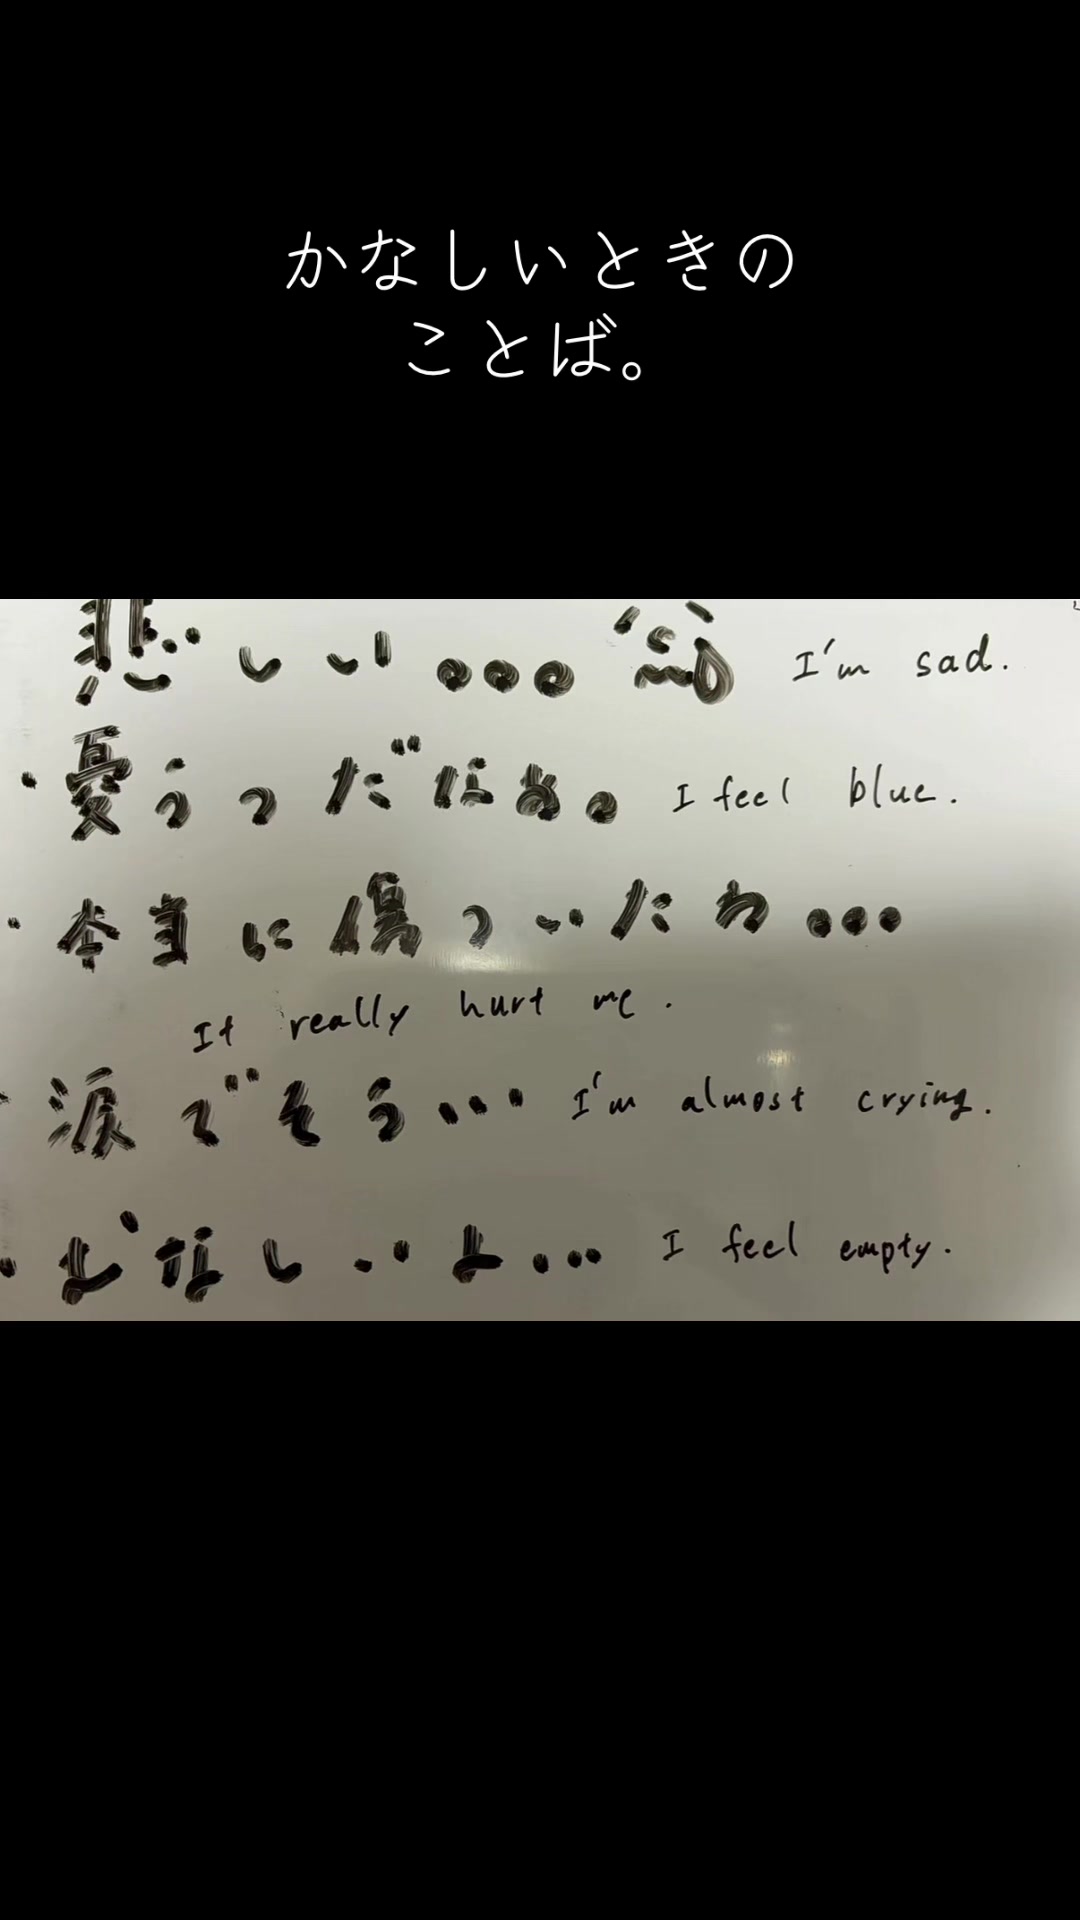 かなしいときの
ことば。
悲しい... I'm sad.
・憂うつだなぁ。 I feel blue.
・本当に傷ついたわ...
It really hurt me.
・涙でそう... I'm almost crying.
・むなしいよ... I feel empty.